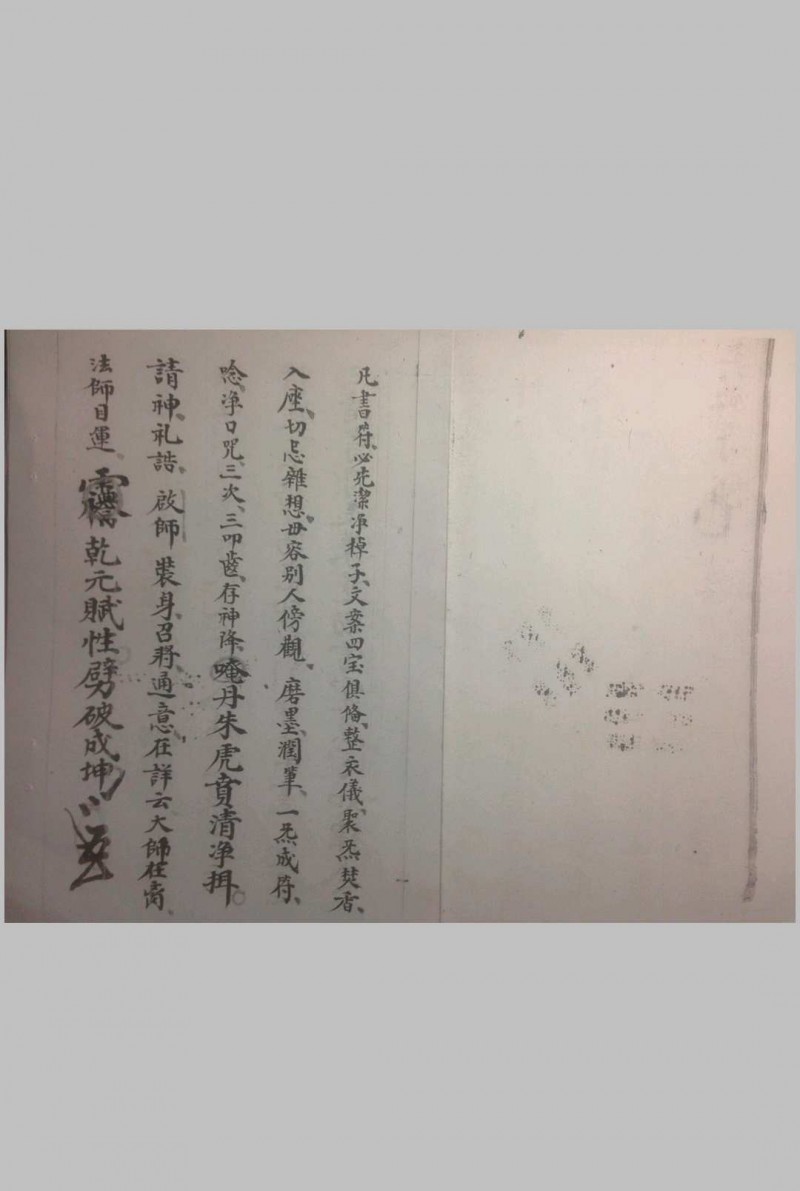 凡書符、必先潔净棹子、文案四宝俱俻、整衣儀、聚炁焚香、
入座、切忌雜想、毋容别人傍觀、磨墨潤筆、一炁成符、
唸净口咒、三次、三叩齒、存神降、唵丹朱虎賁清净
請神、礼誥、啟師裝身、召将、通意在詳云大師在
法師日運、乾元賦性劈破成坤